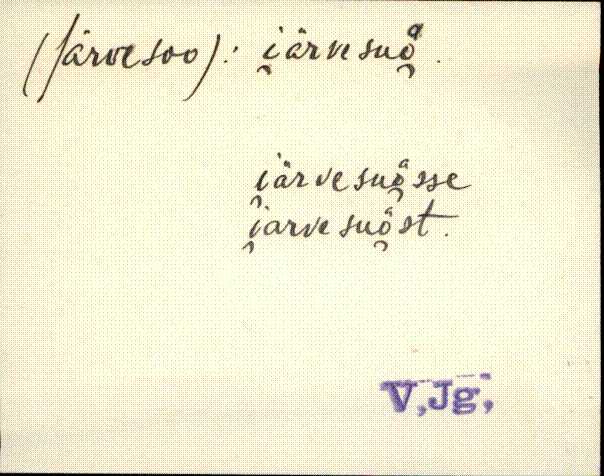 (Järvesoo): i̯ärvesuo̯ᵃ.
i̯ärvesuo̯ᵃsse
i̯arvesuo̯ᵃst.
V, Jg,